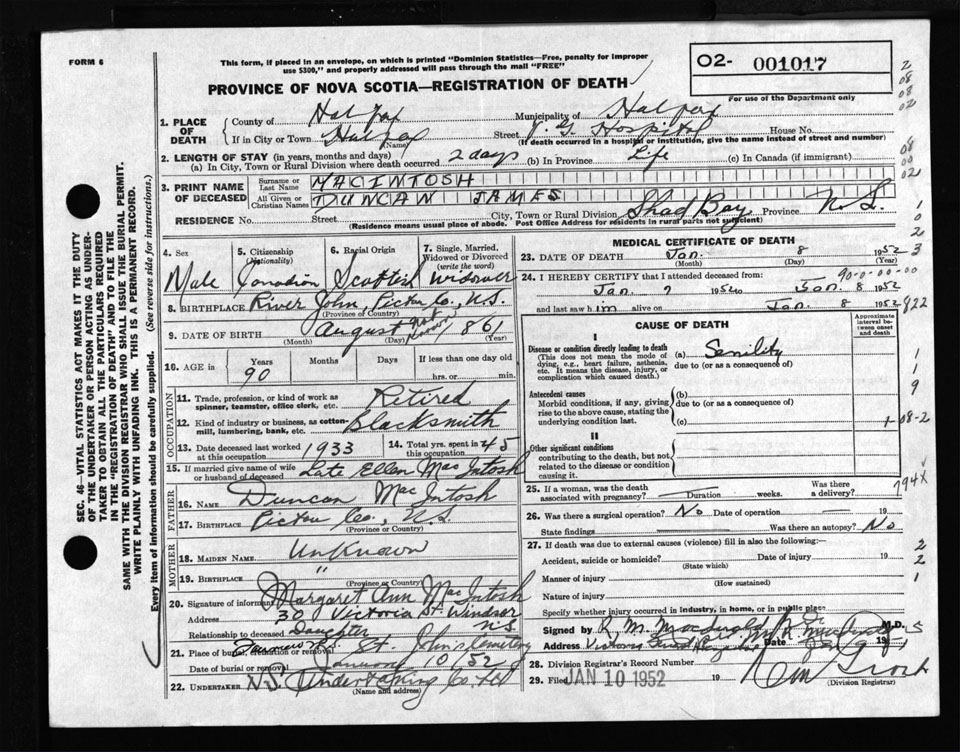 FORM 6
This form, if placed in an envelope, on which is printed "Dominion Statistics—Free, penalty for improper
use $300," and properly addressed will pass through the mail "FREE"
O2- 001017
For use of the Department only
PROVINCE OF NOVA SCOTIA—REGISTRATION OF DEATH
1. PLACE OF DEATH
County of Halifax Municipality of Halifax
If in City or Town Halifax (Name) Street V. G. Hospital House No.
(If death occurred in a hospital or institution, give the name instead of street and number)
2. LENGTH OF STAY (in years, months and days)
(a) In City, Town or Rural Division where death occurred 2 days (b) In Province Life (c) In Canada (if immigrant)
3. PRINT NAME OF DECEASED
Surname or Last Name MACINTOSH
All Given or Christian Names DUNCAN JAMES
RESIDENCE No. Street City, Town or Rural Division Shad Bay Province N.S.
(Residence means usual place of abode. Post Office Address for residents in rural parts not sufficient)
4. Sex Male
5. Citizenship (Nationality) Canadian
6. Racial Origin Scottish
7. Single, Married, Widowed or Divorced (write the word) Widower
8. BIRTHPLACE River John, Pictou Co., N.S.
(Province or Country)
9. DATE OF BIRTH August not known 1861
(Month) (Day) (Year)
10. AGE in Years 90 Months Days If less than one day hrs. or min.
OCCUPATION
11. Trade, profession, or kind of work as spinner, teamster, office clerk, etc. Retired
12. Kind of industry or business, as cotton-mill, lumbering, bank, etc. Blacksmith
13. Date deceased last worked at this occupation 1933
14. Total yrs. spent in this occupation 45
15. If married give name of wife or husband of deceased Late Ellen MacIntosh
FATHER
16. NAME Duncan MacIntosh
17. BIRTHPLACE Pictou Co., N.S.
(Province or Country)
MOTHER
18. MAIDEN NAME Unknown
19. BIRTHPLACE "
(Province or Country)
20. Signature of informant Margaret Ann MacIntosh
Address 30 Victoria St. Windsor N.S.
Relationship to deceased Daughter
21. Place of burial, cremation or removal St. John's Cemetery
Date of burial or removal January 10, 52
22. UNDERTAKER N.S. Undertaking Co. Ltd
(Name and address)
MEDICAL CERTIFICATE OF DEATH
23. DATE OF DEATH Jan. 8 1952
(Month) (Day) (Year)
24. I HEREBY CERTIFY that I attended deceased from:
Jan. 7 1952 to Jan. 8 1952
and last saw him alive on Jan. 8 1952
CAUSE OF DEATH
Approximate interval between onset and death
I
Disease or condition directly leading to death
(This does not mean the mode of dying, e.g., heart failure, asthenia, etc. It means the disease, injury, or complication which caused death.)
(a) Senility
due to (or as a consequence of)
Antecedent causes
Morbid conditions, if any, giving rise to the above cause, stating the underlying condition last.
(b)
due to (or as a consequence of)
(c)
II
Other significant conditions
contributing to the death, but not related to the disease or condition causing it.
25. If a woman, was the death associated with pregnancy? Duration weeks. Was there a delivery?
26. Was there a surgical operation? No Date of operation 19
State findings Was there an autopsy? No
27. If death was due to external causes (violence) fill in also the following:—
Accident, suicide or homicide? Date of injury 19
(State which)
Manner of injury
(How sustained)
Nature of injury
Specify whether injury occurred in industry, in home, or in public place
Signed by M.D.
Address Date 19
28. Division Registrar's Record Number
29. Filed JAN 10 1952 19
(Division Registrar)
SEC. 46—VITAL STATISTICS ACT MAKES IT THE DUTY
OF THE UNDERTAKER OR PERSON ACTING AS UNDER-
TAKER TO OBTAIN ALL THE PARTICULARS REQUIRED
IN THE "REGISTRATION OF DEATH" AND TO FILE THE
SAME WITH THE DIVISION REGISTRAR WHO SHALL ISSUE THE BURIAL PERMIT.
WRITE PLAINLY WITH UNFADING INK. THIS IS A PERMANENT RECORD.
Every item of information should be carefully supplied. (See reverse side for instructions.)